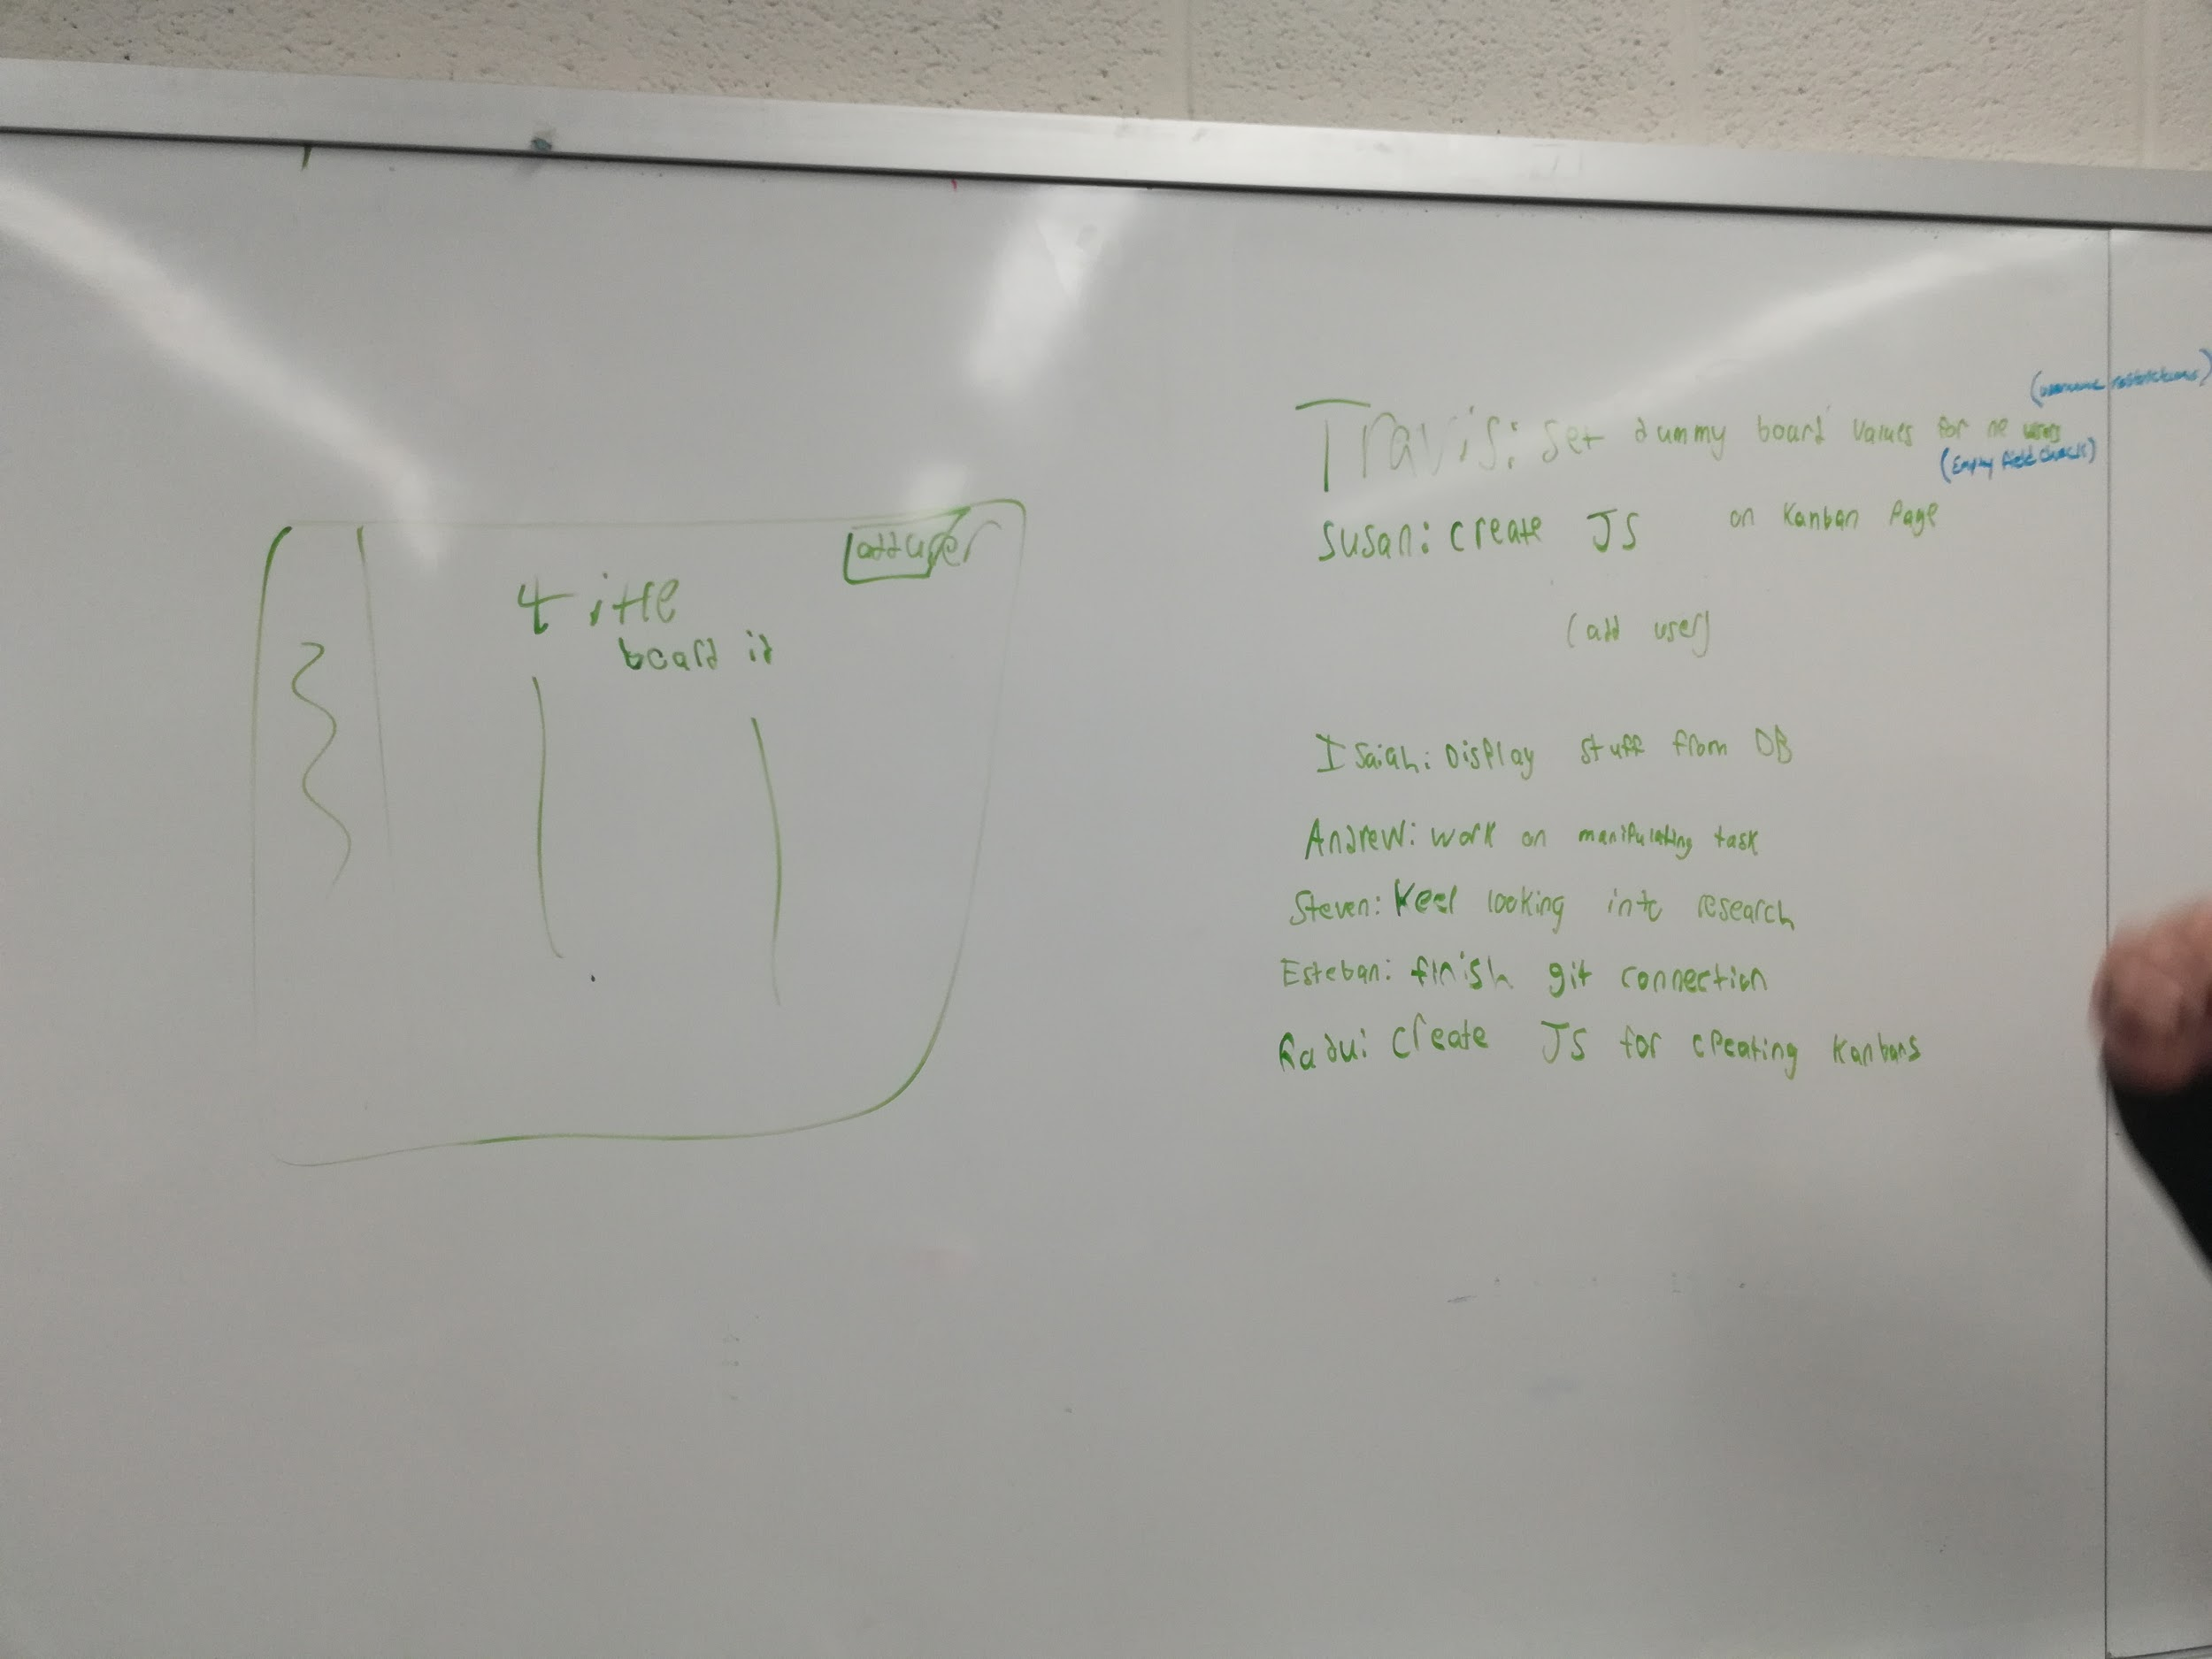 add user
title
board id
(username restrictions)
Travis: set dummy board values for ne users
(Empty field check)
Susan: create JS on Kanban Page
(add user)
Isaiah: Display stuff from DB
Andrew: work on manipulating task
Steven: Keep looking into research
Esteban: finish git connection
Radu: create JS for creating Kanbans